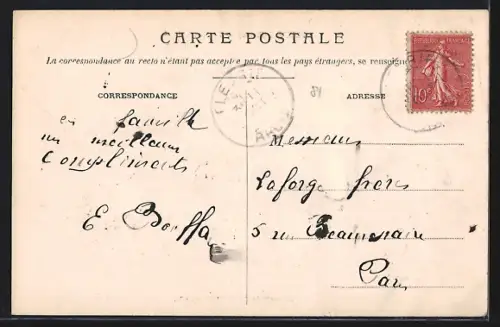 CARTE POSTALE
La correspondance au recto n'étant pas acceptée par tous les pays étrangers, se renseigner
CORRESPONDANCE
ADRESSE
10c
et famille
mes meilleurs
Compliments
E.
Messieurs
Laforge frères
5 rue Beaumarchais
Paris